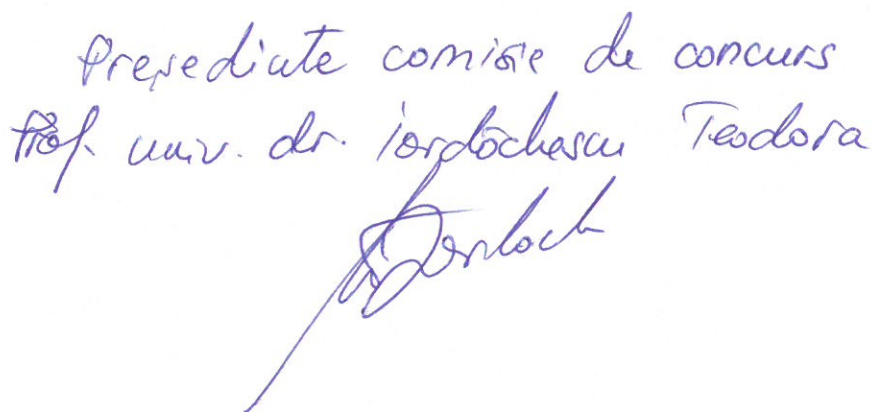 Președinte comisie de concurs
Prof. univ. dr. Iordăchescu Teodora